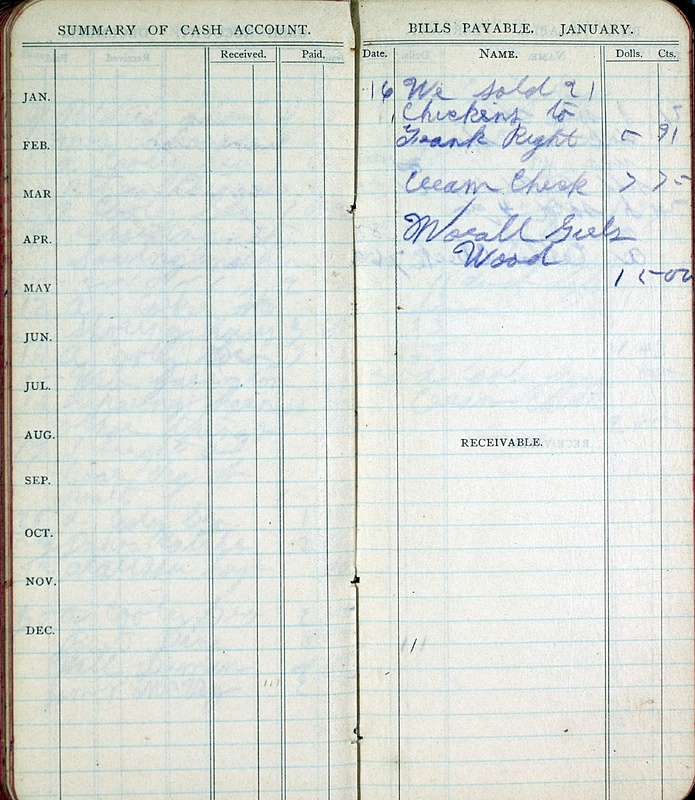 SUMMARY OF CASH ACCOUNT.
Received. Paid.
JAN.
FEB.
MAR
APR.
MAY
JUN.
JUL.
AUG.
SEP.
OCT.
NOV.
DEC.
BILLS PAYABLE. JANUARY.
Date. NAME. Dolls. Cts.
16 We sold 21
Chickens to
Frank Right 5 91
Cream Check 7 75
Girls
Wood
15 00
RECEIVABLE.